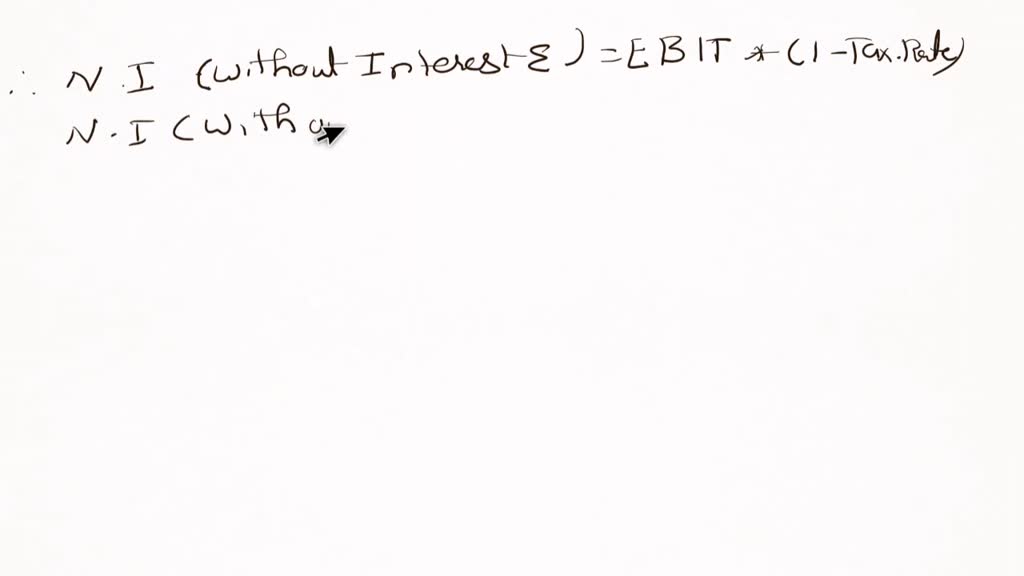 ∴ N.I (without Interest Σ) = EBIT * (1-Tax.Rate)
N.I (with